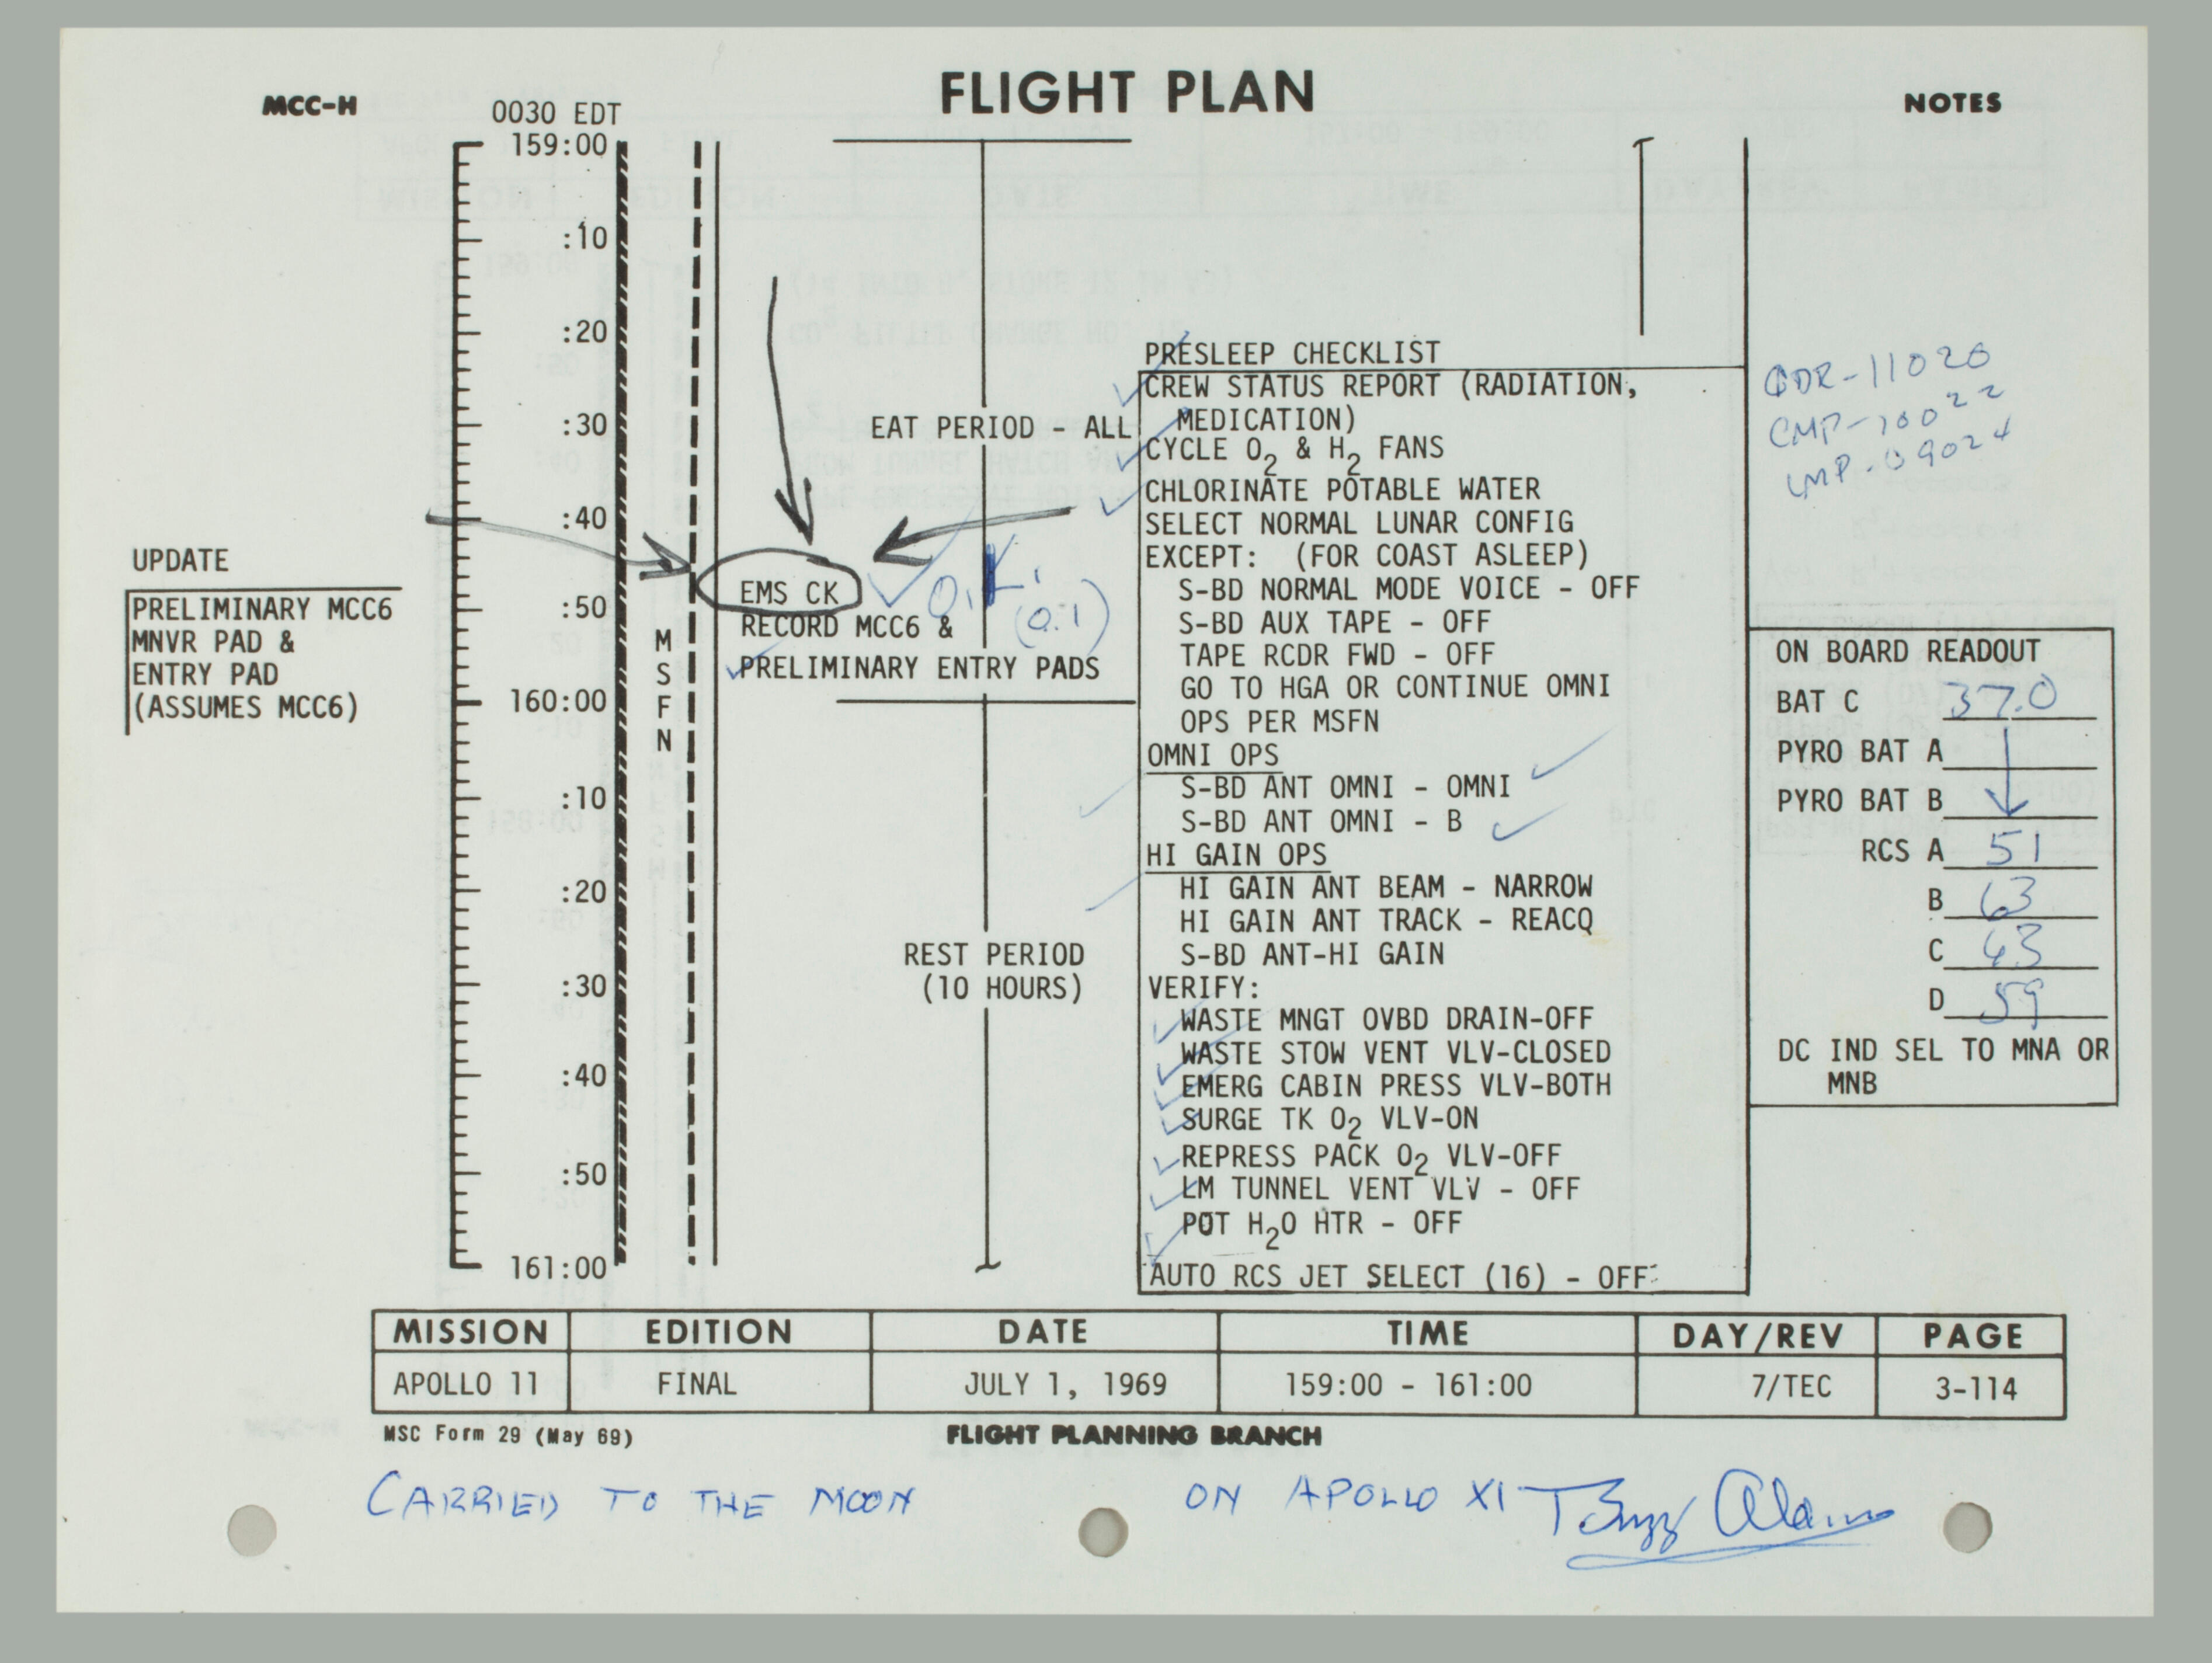 FLIGHT PLAN
MCC-H
0030 EDT
NOTES
159:00
:10
:20
:30
:40
:50
160:00
:10
:20
:30
:40
:50
161:00
UPDATE
PRELIMINARY MCC6
MNVR PAD &
ENTRY PAD
(ASSUMES MCC6)
M
S
F
N
EAT PERIOD - ALL
EMS CK
(0.1)
RECORD MCC6 &
PRELIMINARY ENTRY PADS
REST PERIOD
(10 HOURS)
PRESLEEP CHECKLIST
CREW STATUS REPORT (RADIATION,
MEDICATION)
CYCLE O2 & H2 FANS
CHLORINATE POTABLE WATER
SELECT NORMAL LUNAR CONFIG
EXCEPT: (FOR COAST ASLEEP)
S-BD NORMAL MODE VOICE - OFF
S-BD AUX TAPE - OFF
TAPE RCDR FWD - OFF
GO TO HGA OR CONTINUE OMNI
OPS PER MSFN
OMNI OPS
S-BD ANT OMNI - OMNI
S-BD ANT OMNI - B
HI GAIN OPS
HI GAIN ANT BEAM - NARROW
HI GAIN ANT TRACK - REACQ
S-BD ANT-HI GAIN
VERIFY:
WASTE MNGT OVBD DRAIN-OFF
WASTE STOW VENT VLV-CLOSED
EMERG CABIN PRESS VLV-BOTH
SURGE TK O2 VLV-ON
REPRESS PACK O2 VLV-OFF
LM TUNNEL VENT VLV - OFF
POT H2O HTR - OFF
AUTO RCS JET SELECT (16) - OFF
CDR-11020
CMP-10022
LMP-09024
ON BOARD READOUT
BAT C 37.0
PYRO BAT A
PYRO BAT B
RCS A 51
B 63
C 63
D 59
DC IND SEL TO MNA OR
MNB
MISSION EDITION DATE TIME DAY/REV PAGE
APOLLO 11 FINAL JULY 1, 1969 159:00 - 161:00 7/TEC 3-114
MSC Form 29 (May 69)
FLIGHT PLANNING BRANCH
CARRIED TO THE MOON ON APOLLO XI Buzz Aldrin